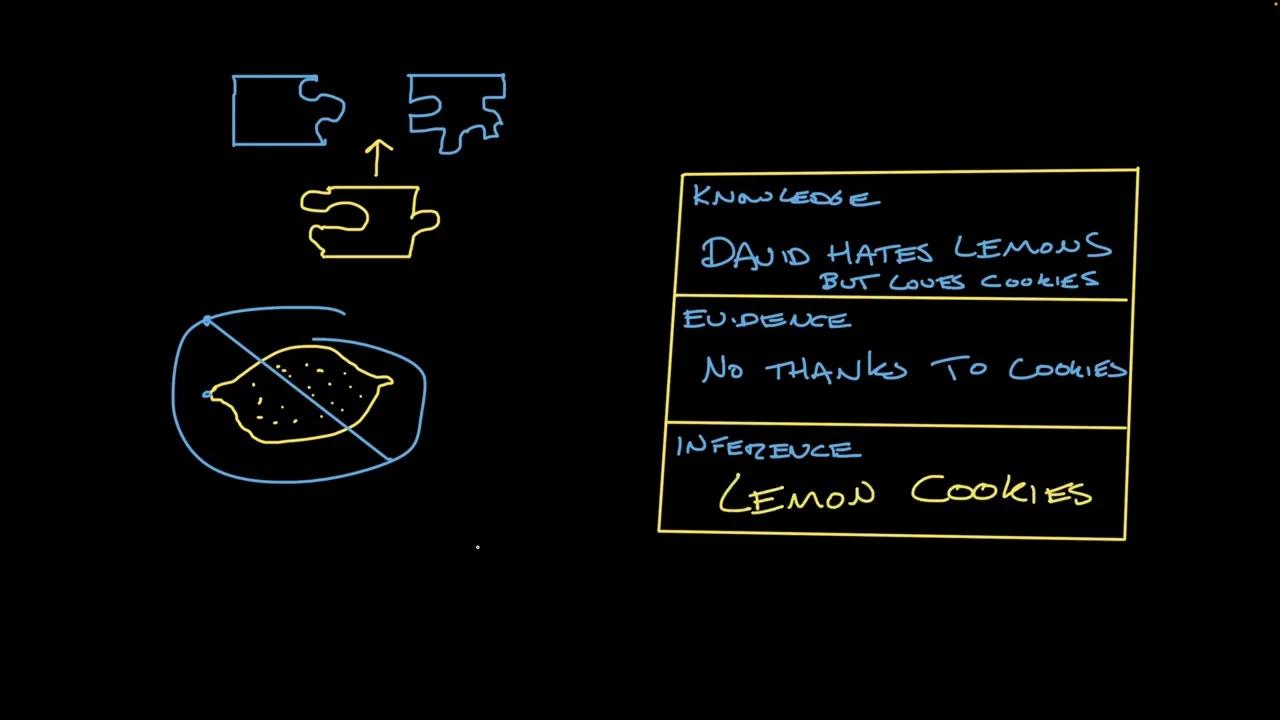 KNOWLEDGE
DAVID HATES LEMONS
BUT LOVES COOKIES
EVIDENCE
NO THANKS TO COOKIES
INFERENCE
LEMON COOKIES